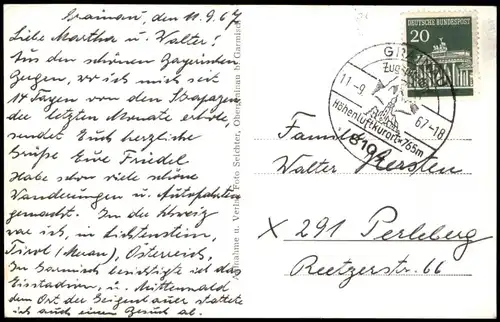 Grainau, den 11.9.67
Liebe Martha u. Walter!
Aus den schönen Zugspitz
wo ich mich seit
14 Tagen von den Strapazen
der letzten Monate erhole
sendet Euch herzliche
Grüße Eure Friedel
Habe schon viele schöne
Wanderungen u. Autofahrten
gemacht. In der Schweiz
war ich, in Lichtenstein,
Tirol (Meran), Österreich,
In Garmisch besichtigte ich das
Eisstadion, u. Mittenwald
dem Ort der Geigenbauer stattete
ich auch einen Besuch ab.
Aufnahme u. Verlag Foto Seichter, Obergrainau b. Garmisch
DEUTSCHE BUNDESPOST
20
GR
Zug
11-9
67-18
Höhenluftkurort 765m
8104
Familie
Walter Kersten
X 291 Perleberg
Reetzerstr. 66